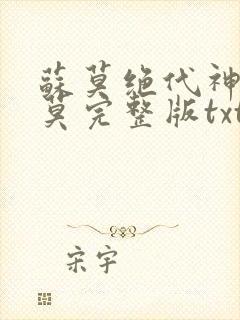 蘇莫绝代神
莫完整版txt
宋宇